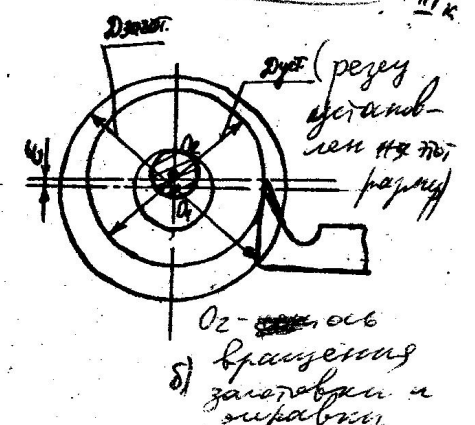 IIк
Dзагот.
Dуст. (резец
установ-
лен на этот
размер)
ε
O₂
O₁
O₂- ось
вращения
б) заготовки и
оправки